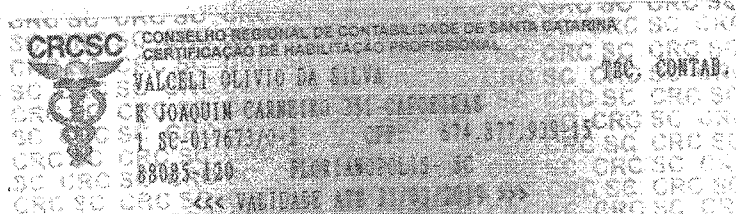 CRCSC
CONSELHO REGIONAL DE CONTABILIDADE DE SANTA CATARINA
CERTIFICAÇÃO DE HABILITAÇÃO PROFISSIONAL
VALCELI OLIVIO DA SILVA TEC. CONTAB.
R JOAQUIM CARNEIRO 351 CAPOEIRAS
1 SC-017673/O-1 CPF
88085-120 FLORIANOPOLIS- SC
<<< VALIDADE ATE >>>